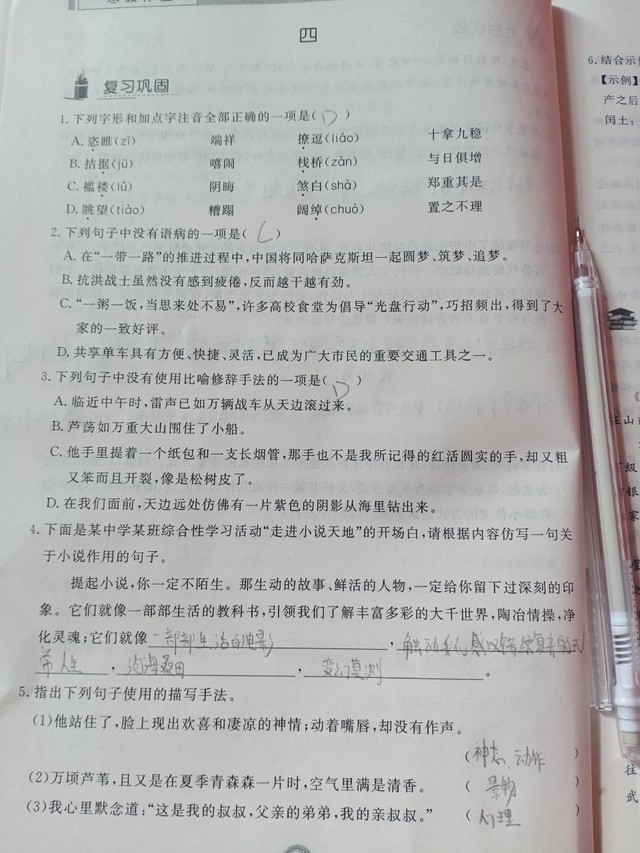 四
复习巩固
1. 下列字形和加点字注音全部正确的一项是( D )
A. 恣睢(zī) 端祥 撩逗(liáo) 十拿九稳
B. 拮据(jū) 嘻闹 栈桥(zàn) 与日俱增
C. 褴褛(lǚ) 阴晦 煞白(shà) 郑重其是
D. 眺望(tiào) 糟蹋 阔绰(chuò) 置之不理
2. 下列句子中没有语病的一项是( C )
A. 在“一带一路”的推进过程中,中国将同哈萨克斯坦一起圆梦、筑梦、追梦。
B. 抗洪战士虽然没有感到疲倦,反而越干越有劲。
C. “一粥一饭,当思来处不易”,许多高校食堂为倡导“光盘行动”,巧招频出,得到了大
家的一致好评。
D. 共享单车具有方便、快捷、灵活,已成为广大市民的重要交通工具之一。
3. 下列句子中没有使用比喻修辞手法的一项是( D )
A. 临近中午时,雷声已如万辆战车从天边滚过来。
B. 芦荡如万重大山围住了小船。
C. 他手里提着一个纸包和一支长烟管,那手也不是我所记得的红活圆实的手,却又粗
又笨而且开裂,像是松树皮了。
D. 在我们面前,天边远处仿佛有一片紫色的阴影从海里钻出来。
4. 下面是某中学某班综合性学习活动“走进小说天地”的开场白,请根据内容仿写一句关
于小说作用的句子。
提起小说,你一定不陌生。那生动的故事、鲜活的人物,一定给你留下过深刻的印
象。它们就像一部部生活的教科书,引领我们了解丰富多彩的大千世界,陶冶情操,净
化灵魂;它们就像 一部部生活的电影 ,
人生 , 沧海桑田 , 变幻莫测 。
5. 指出下列句子使用的描写手法。
(1)他站住了,脸上现出欢喜和凄凉的神情;动着嘴唇,却没有作声。
( 神态、动作 )
(2)万顷芦苇,且又是在夏季青森森一片时,空气里满是清香。 ( 景物 )
(3)我心里默念道:“这是我的叔叔,父亲的弟弟,我的亲叔叔。” ( 心理 )
6. 结合示
【示例】
产之后
闰土: